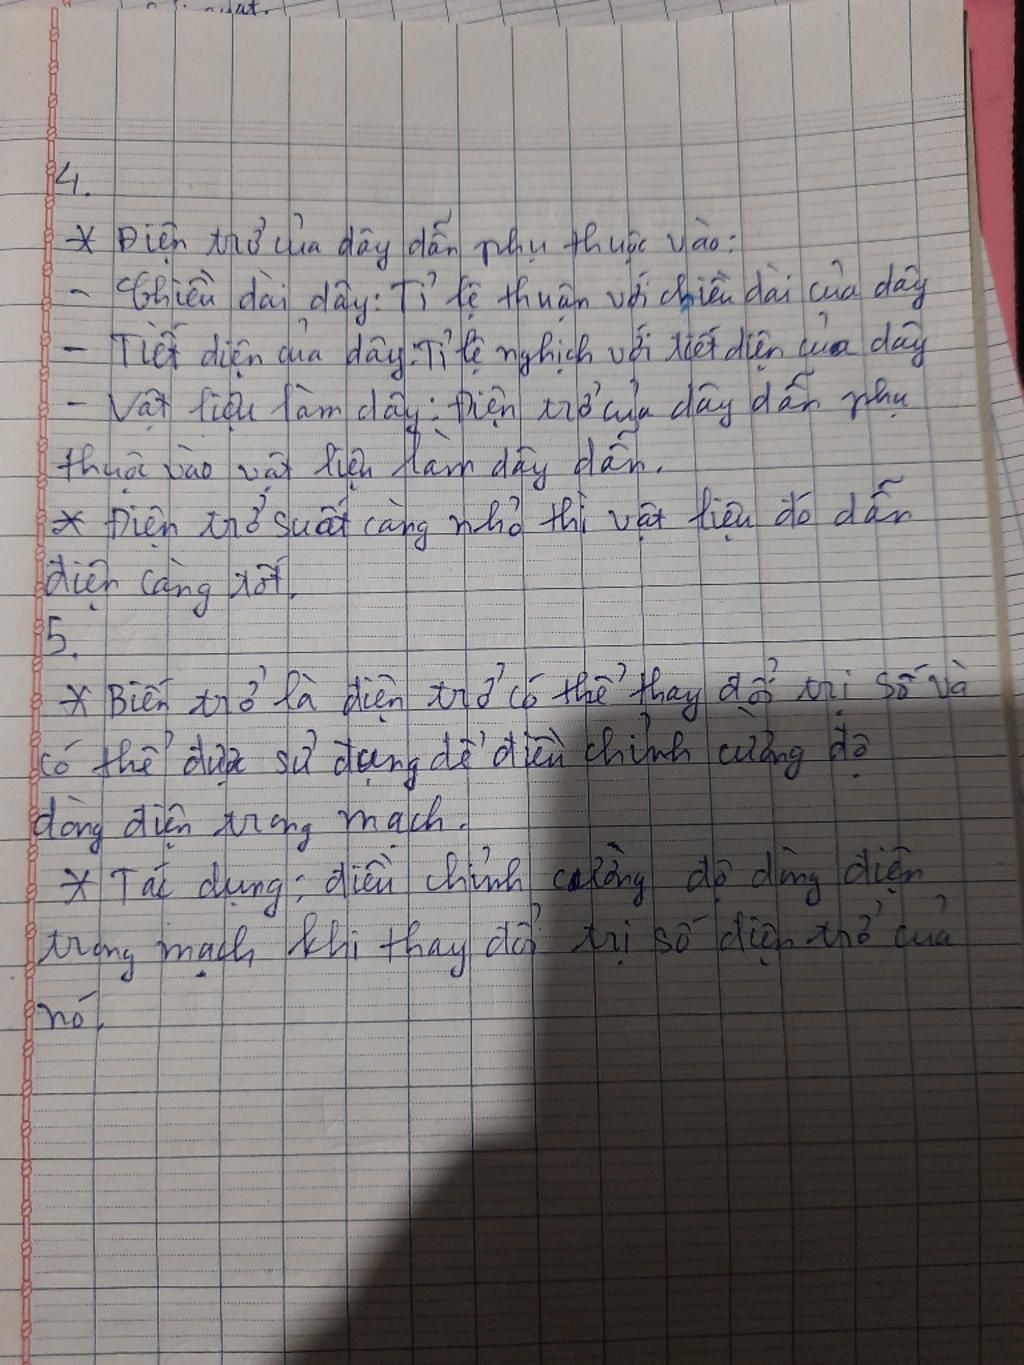 4.
* Điện trở của dây dẫn phụ thuộc vào:
- Chiều dài dây: Tỉ lệ thuận với chiều dài của dây
- Tiết diện của dây: Tỉ lệ nghịch với tiết diện của dây
- Vật liệu làm dây: Điện trở của dây dẫn phụ
thuộc vào vật liệu làm dây dẫn.
* Điện trở suất càng nhỏ thì vật liệu đó dẫn
điện càng tốt.
5.
* Biến trở là điện trở có thể thay đổi trị số và
có thể được sử dụng để điều chỉnh cường độ
dòng điện trong mạch.
* Tác dụng: điều chỉnh cường độ dòng điện
trong mạch khi thay đổi trị số điện trở của
nó.